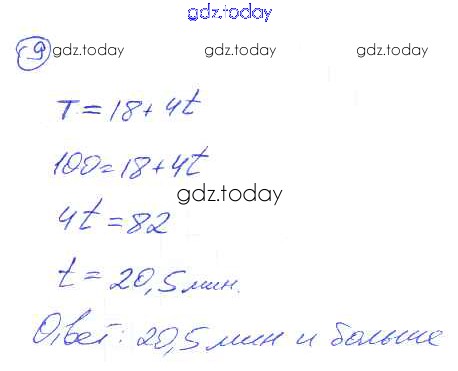 gdz.today
9 gdz.today gdz.today
T = 18 + 4t
100 = 18 + 4t
gdz.today
4t = 82
t = 20,5 мин.
Ответ: 20,5 мин и больше